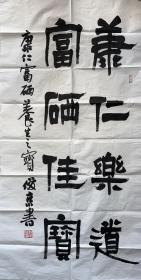 養仁樂道
富硒佳寶
康仁富硒養生之寶
書